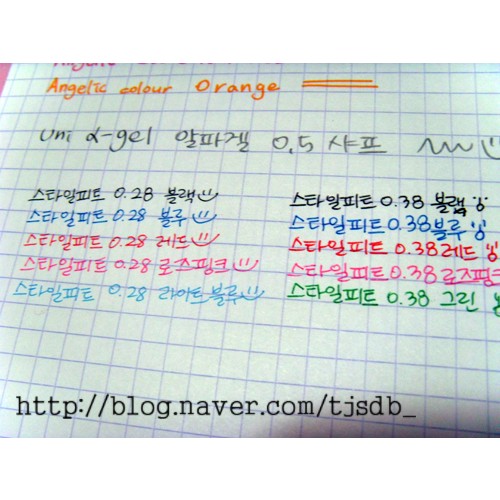 Angelic colour Orange
uni α-gel 알파겔 0.5 샤프
스타일피트 0.28 블랙
스타일피트 0.28 블루
스타일피트 0.28 레드
스타일피트 0.28 로즈핑크
스타일피트 0.28 라이트블루
스타일피트 0.38 블랙
스타일피트 0.38 블루
스타일피트 0.38 레드
스타일피트 0.38 로즈핑크
스타일피트 0.38 그린
http://blog.naver.com/tjsdb_